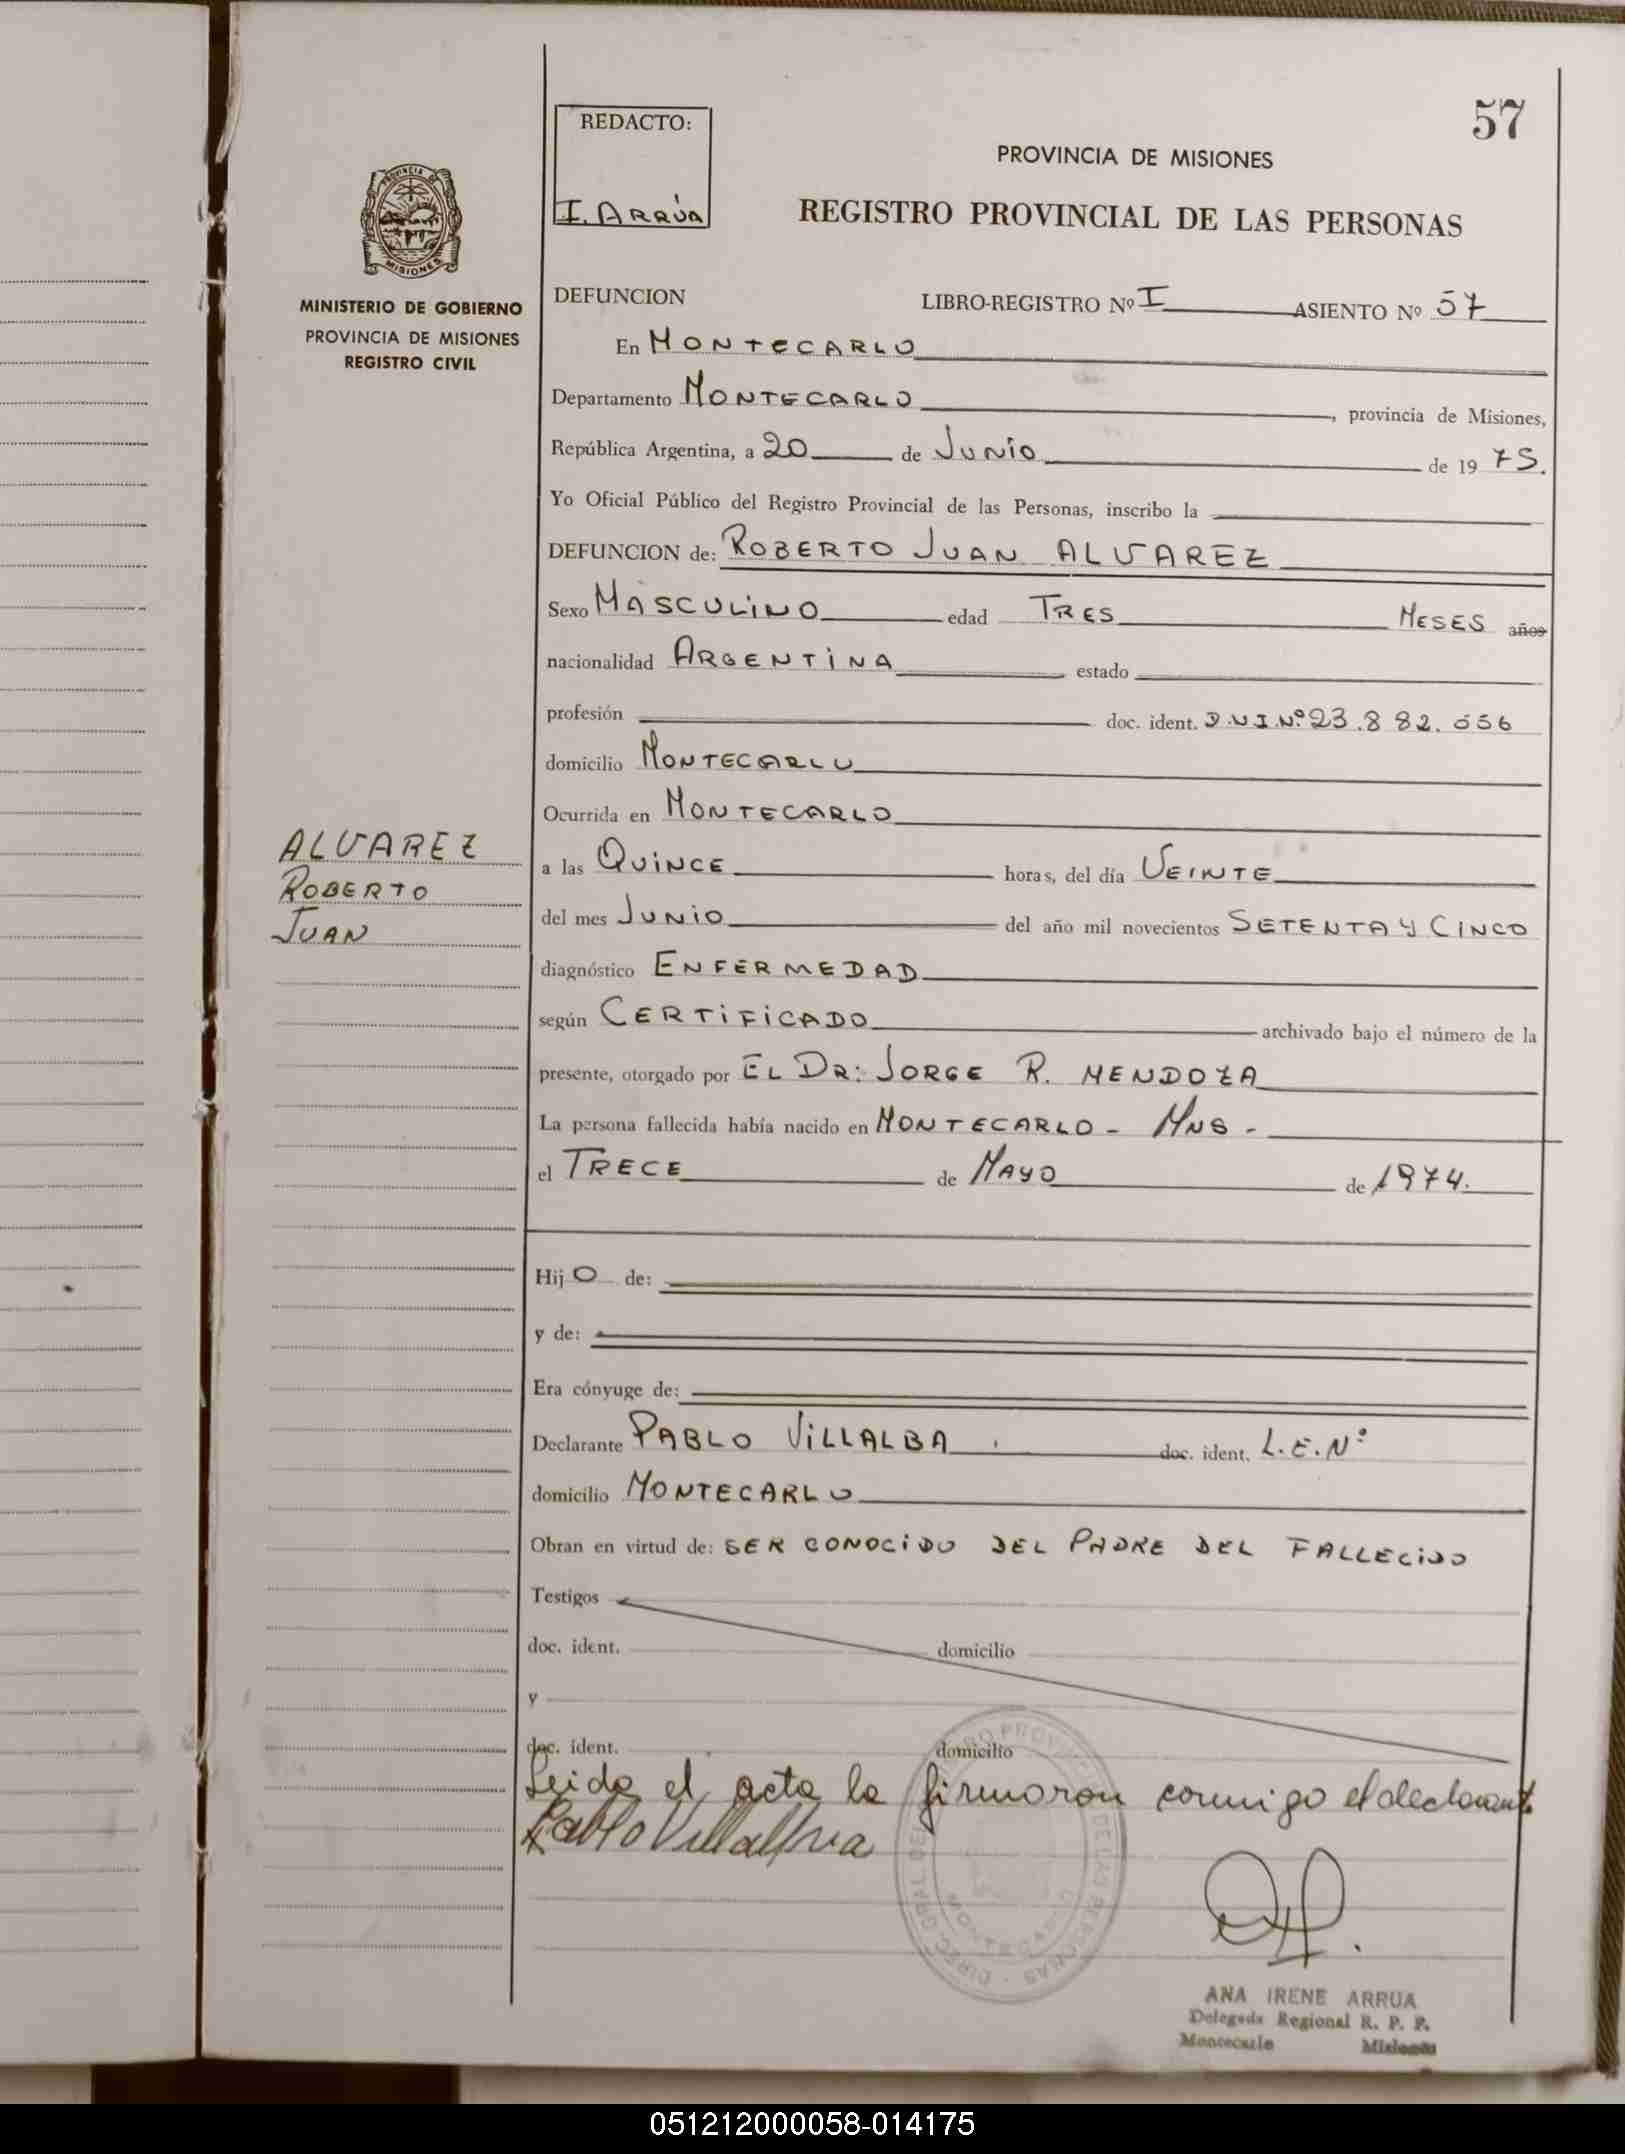 57
REDACTO:
I. ARRÚA
PROVINCIA DE MISIONES
REGISTRO PROVINCIAL DE LAS PERSONAS
PROVINCIA DE
MISIONES
MINISTERIO DE GOBIERNO
PROVINCIA DE MISIONES
REGISTRO CIVIL
DEFUNCION LIBRO-REGISTRO Nº I ASIENTO Nº 57
En MONTECARLO
Departamento MONTECARLO, provincia de Misiones,
República Argentina, a 20 de JUNIO de 19 75.
Yo Oficial Público del Registro Provincial de las Personas, inscribo la
DEFUNCION de: ROBERTO JUAN ALVAREZ
Sexo MASCULINO edad TRES MESES años
nacionalidad ARGENTINA estado
profesión doc. ident. D.N.I.Nº 23.882.056
domicilio MONTECARLO
Ocurrida en MONTECARLO
ALVAREZ
ROBERTO
JUAN
a las QUINCE horas, del día VEINTE
del mes JUNIO del año mil novecientos SETENTA Y CINCO
diagnóstico ENFERMEDAD
según CERTIFICADO archivado bajo el número de la
presente, otorgado por EL DR: JORGE R. MENDOZA
La persona fallecida había nacido en MONTECARLO - MNS -
el TRECE de MAYO de 1974.
Hij O de:
y de:
Era cónyuge de:
Declarante PABLO VILLALBA doc. ident. L.E.Nº
domicilio MONTECARLO
Obran en virtud de: SER CONOCIDO DEL PADRE DEL FALLECIDO
Testigos
doc. ident. domicilio
y
doc. ident. domicilio
Leida el acta la firmaron conmigo el declarante
Pablo Villalba
MONTECARLO
ANA IRENE ARRUA
Delegada Regional R. P. P.
Montecarlo Misiones
051212000058-014175